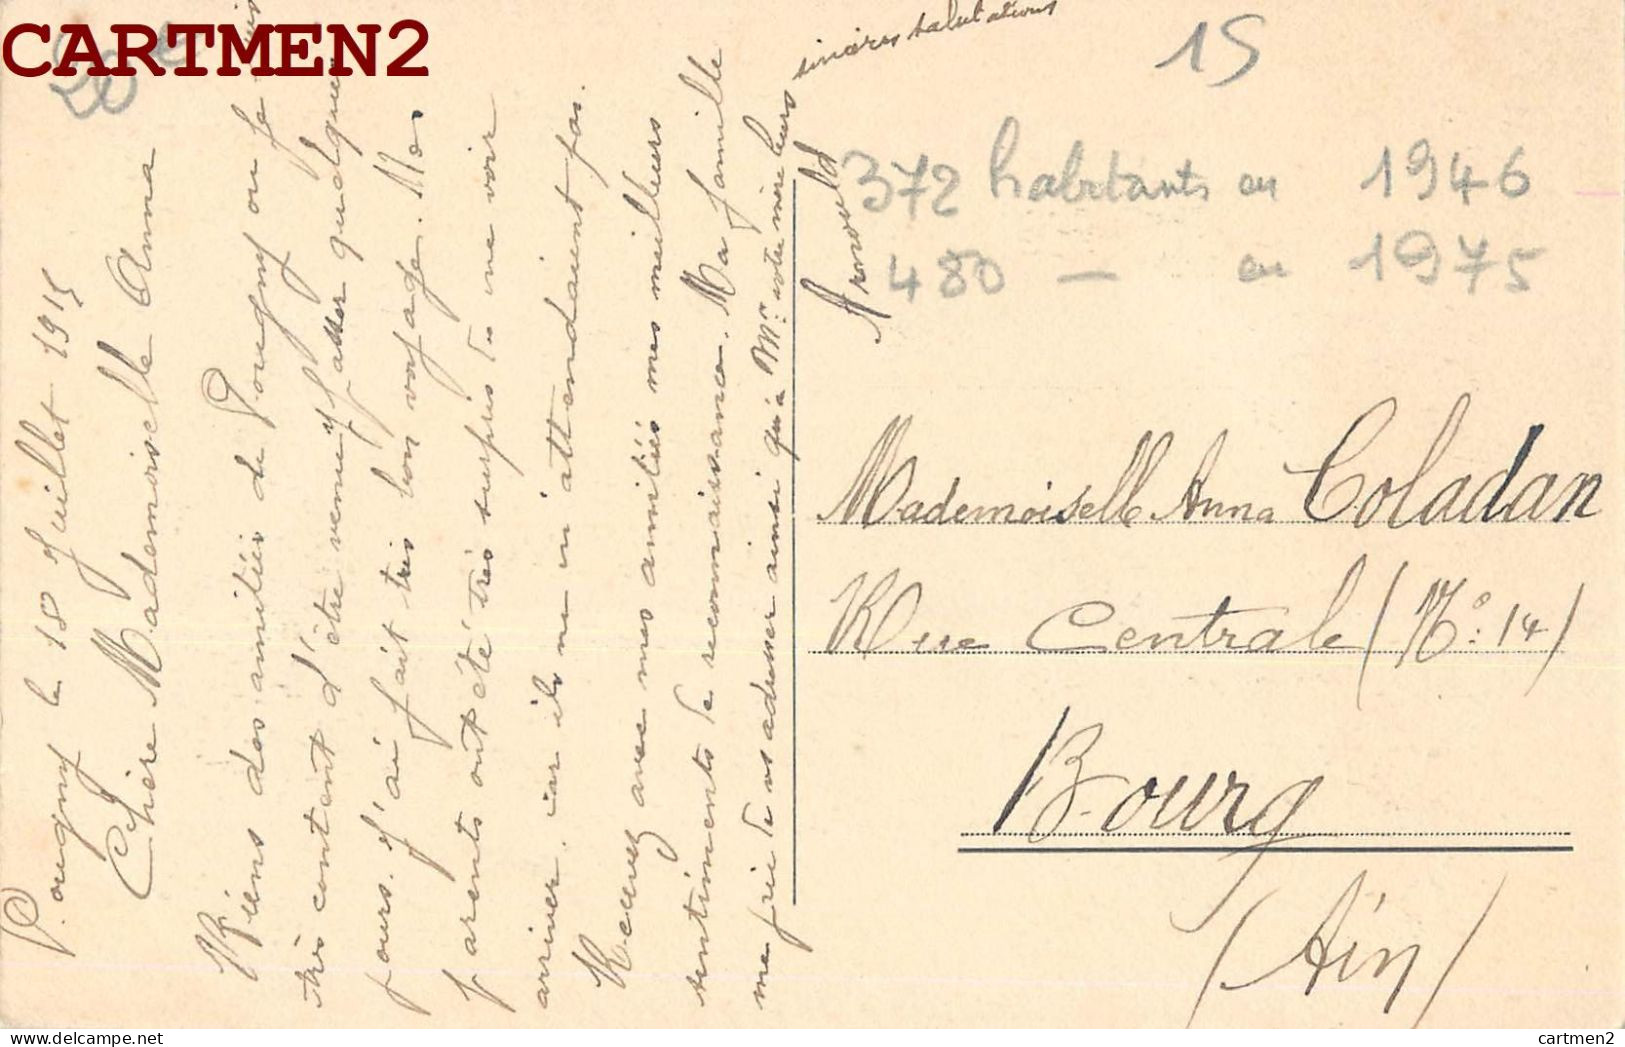 CARTMEN2
20 €
15
372 habitants en 1946
480 — en 1975
Pougny le 18 Juillet 1915
Chère Mademoiselle Anna
Riens des amitiés de Pougny ou je suis
très content d'être venu y passer quelques
jours. J'ai fait très bon voyage. Mes
parents ont été très surpris de me voir
arriver, car ils ne m'attendaient pas.
Recevez avec mes amitiés mes meilleurs
sentiments de reconnaissance. Ma famille
me prie de vs adresser ainsi qu'à Mr: votre mère leurs
sincères salutations
Arnould
Mademoiselle Anna Coladan
Rue Central (No: 14)
Bourg
(Ain)
cartmen2